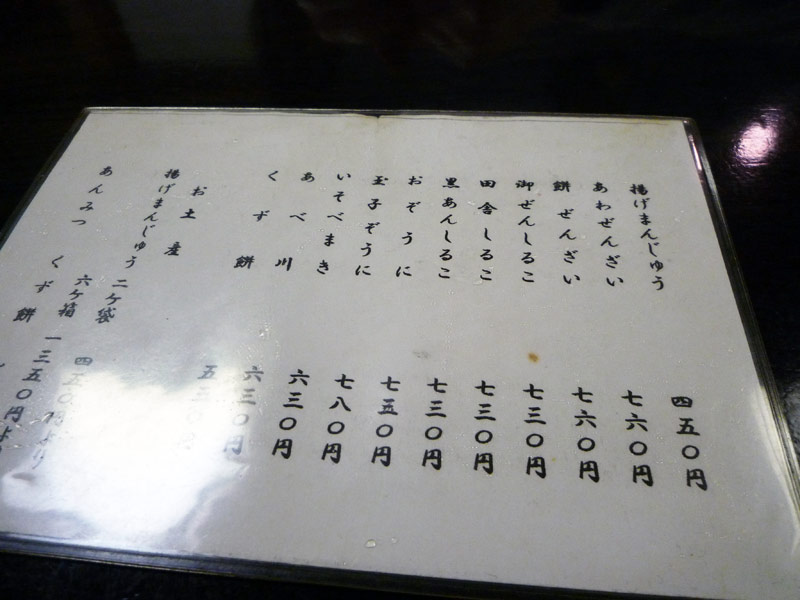 揚げまんじゅう 四五〇円
あわぜんざい 七六〇円
餅ぜんざい 七六〇円
御ぜんしるこ 七三〇円
田舎しるこ 七三〇円
黒あんしるこ 七三〇円
おぞうに 七五〇円
玉子ぞうに 七八〇円
いそべまき 六三〇円
あべ川 六三〇円
くず餅 五
お土産
揚げまんじゅう 二ケ袋 四五〇
六ケ箱 一三五〇円より
あんみつ くず餅